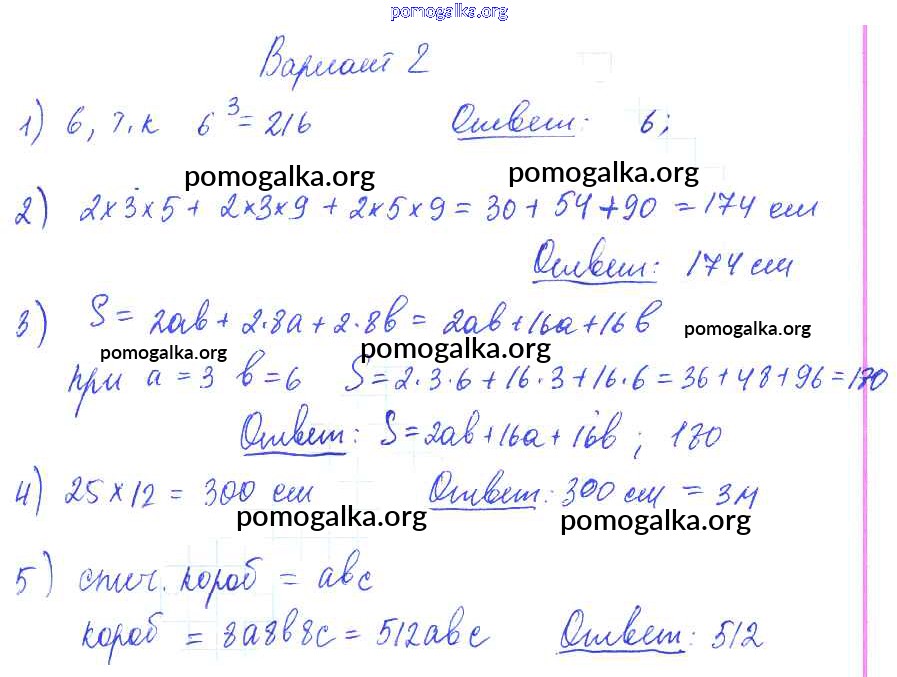 pomogalka.org
Вариант 2
1) 6, т.к 6³ = 216 Ответ: 6;
pomogalka.org pomogalka.org
2) 2×3×5 + 2×3×9 + 2×5×9 = 30 + 54 + 90 = 174 см
Ответ: 174 см
3) S = 2ab + 2·8a + 2·8b = 2ab + 16a + 16b
pomogalka.org pomogalka.org pomogalka.org
при a = 3 b = 6 S = 2·3·6 + 16·3 + 16·6 = 36 + 48 + 96 = 180
Ответ: S = 2ab + 16a + 16b ; 180
4) 25 × 12 = 300 см Ответ: 300 см = 3м
pomogalka.org pomogalka.org
5) спич. короб = abc
короб = 8a8b8c = 512abc Ответ: 512